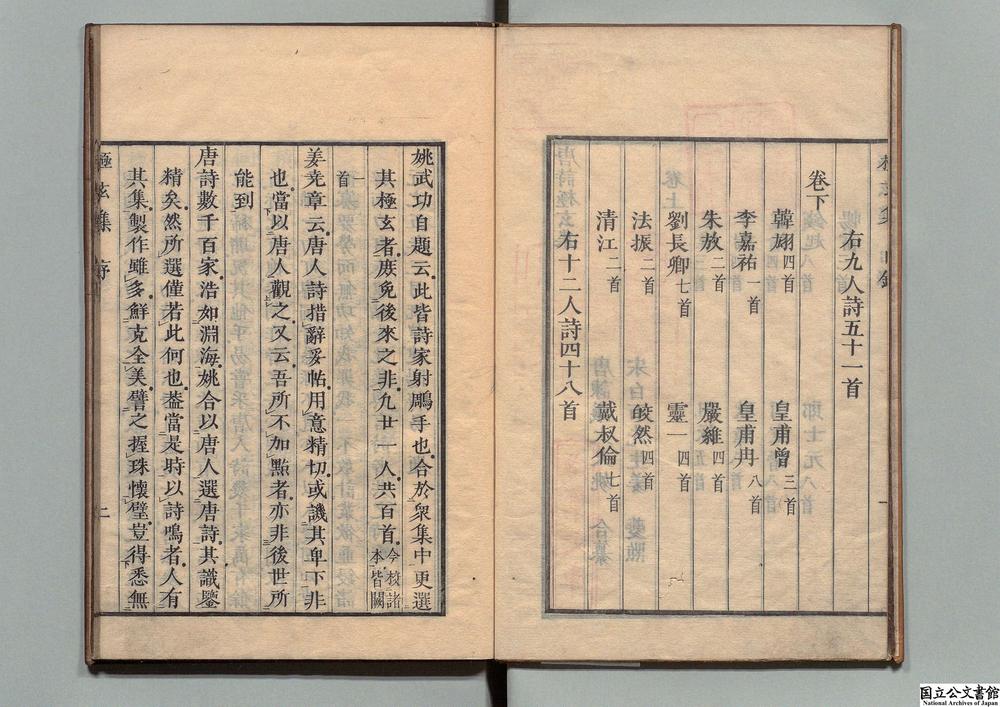 卷下
右九人詩五十一首
韓翃四首 皇甫曾三首
李嘉祐一首 皇甫冉八首
朱放二首 嚴維四首
劉長卿七首 靈一四首
法振二首 皎然四首
清江二首 戴叔倫七首
右十二人詩四十八首
姚武功自題云此皆詩家射鵰手也合於衆集中更選
其極玄者庶免後來之非凡廿一人共百首今校諸本皆闕
一首
姜尭章云唐人詩措辭妥帖用意精切或譏其卑下非
也當以唐人觀之又云吾所不加㸃者亦非後世所
能到
唐詩數千百家浩如淵海姚合以唐人選唐詩其識鑒
精矣然所選僅若此何也葢當是時以詩鳴者人有
其集製作雖多鮮克全美譬之握珠懷璧豈得悉無
極玄集 序 二
国立公文書館
National Archives of Japan